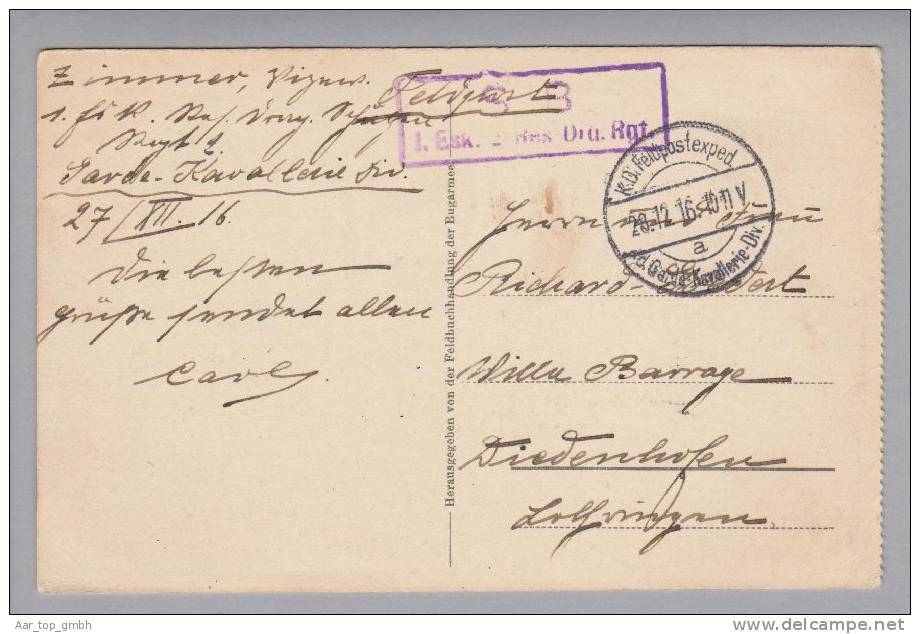 Zimmer, Vizew.
Feldpost
1. Esk. Res. Drag. Schützen
Regt. 2.
Garde-Kavallerie Div.
27/XII. 16.
Die besten
grüße sendet allen
Carl
S B
1. Esk. 2 Res Drg. Rgt.
K.D. Feldpostexped.
28.12.16. 10-11 V
a
d. Garde-Kavallerie-Div.
Herausgegeben von der Feldbuchhandlung der Bugarmee
Herrn und Frau
Richard
Willa Barrage
Diedenhofen
Lothringen
Aar_top_gmbh
http://www.delcampe.net